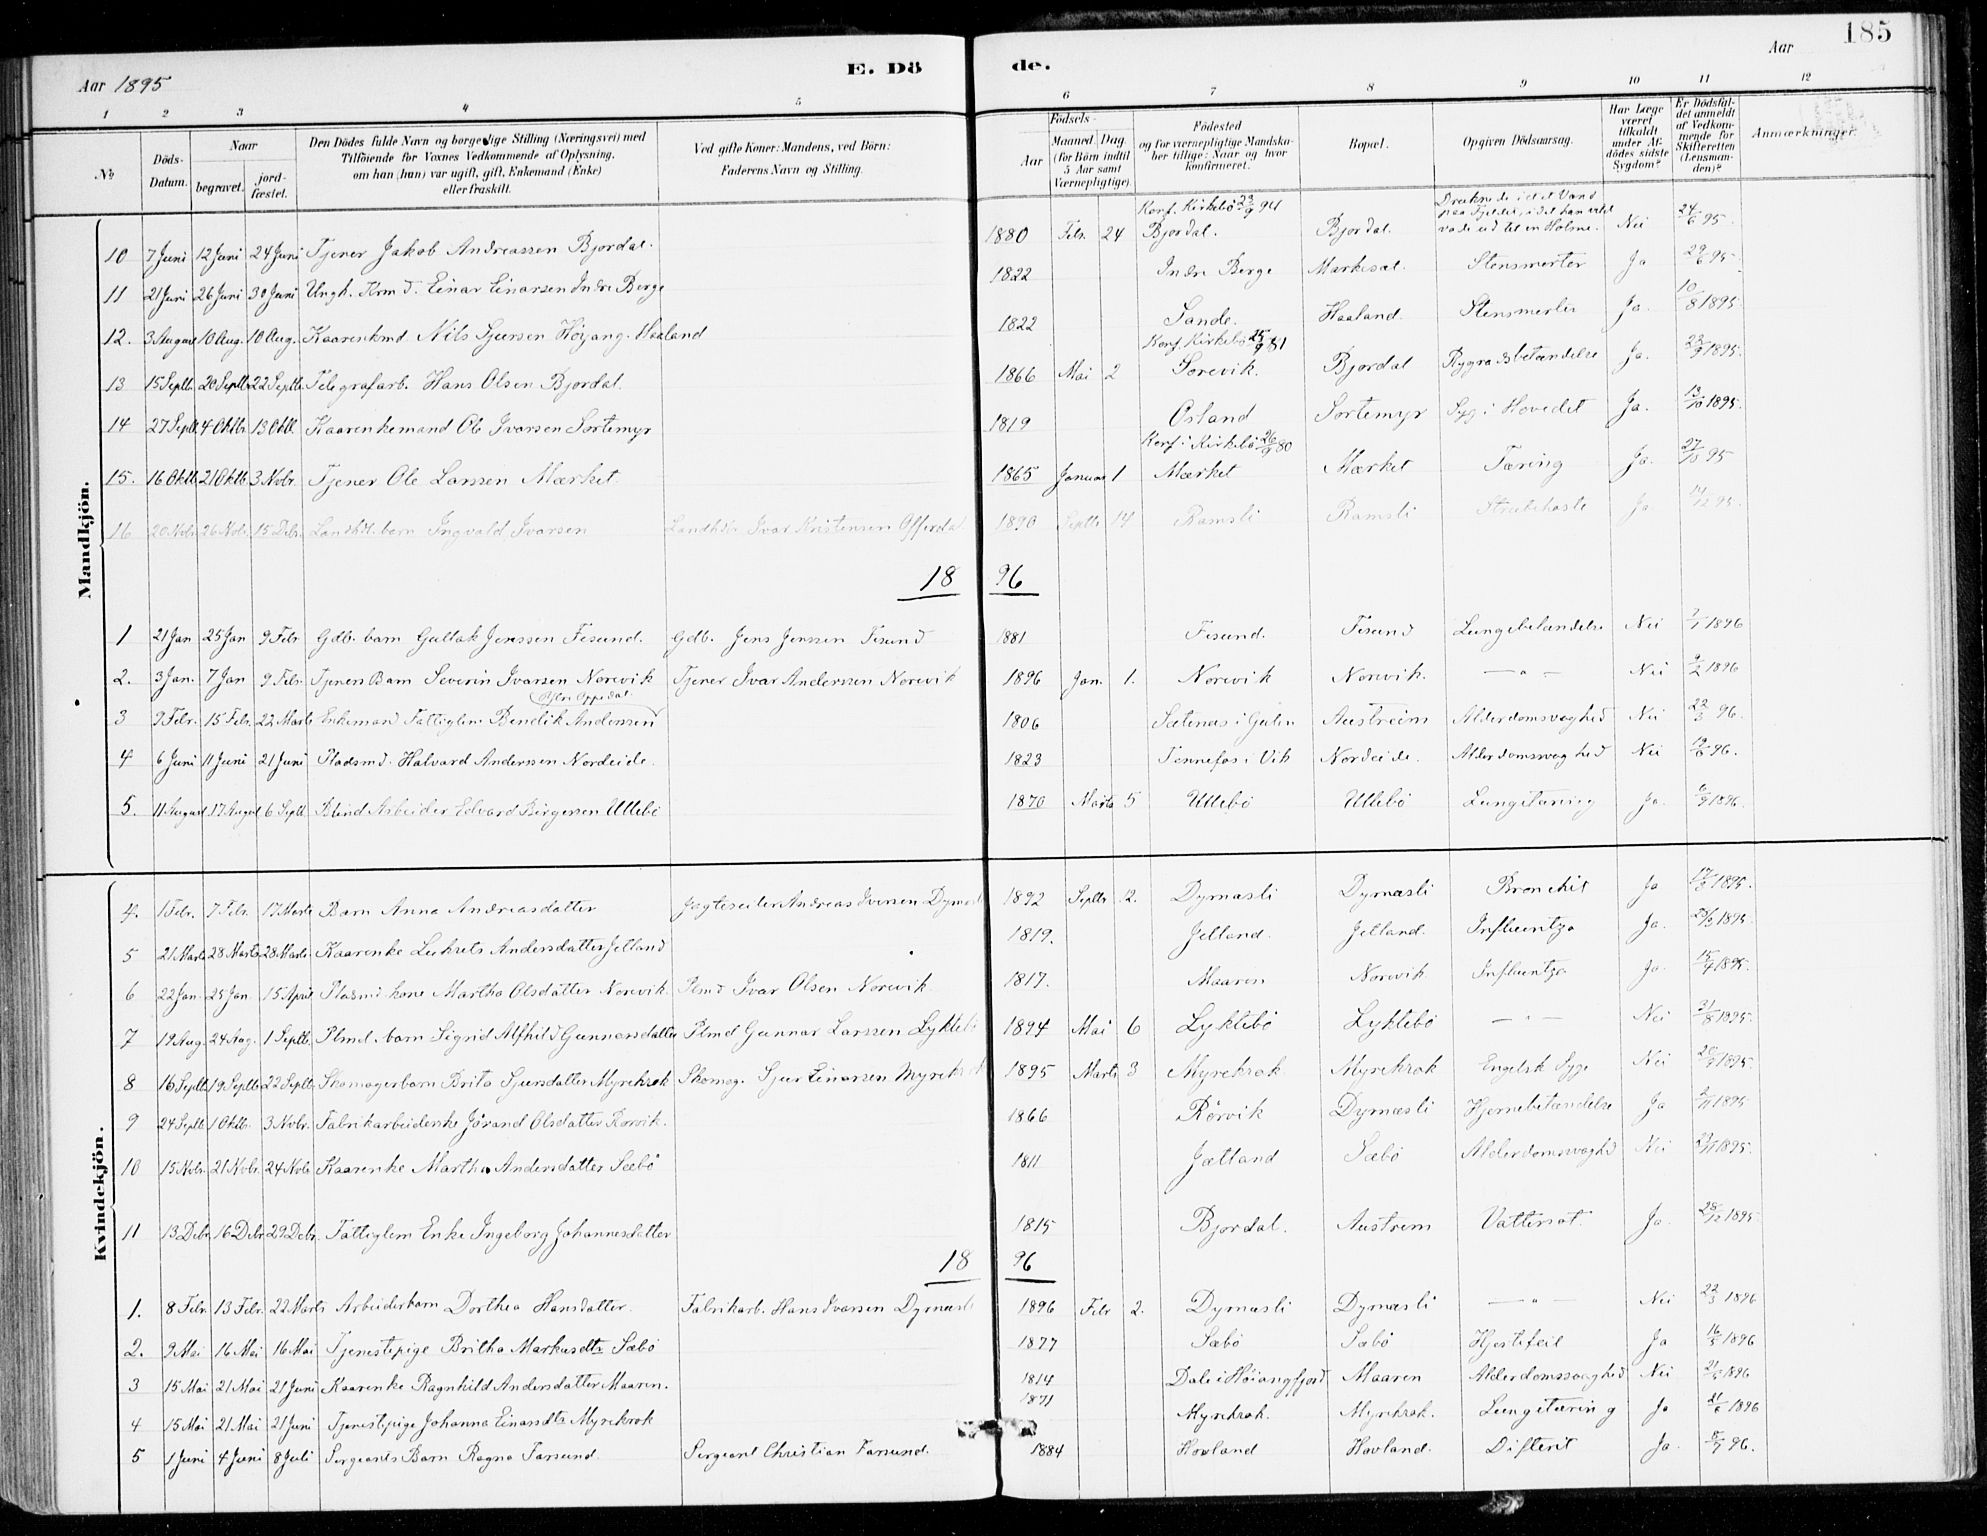 185
Aar 1895 E. Dö de. Aar
1 2 3 4 5 6 7 8 9 10 11 12
№ Döds-Datum. Naar begravet. jord-fæstet. Den Dödes fulde Navn og borgerlige Stilling (Næringsvei) med Tilföiende for Voxnes Vedkommende af Oplysning, om han (hun) var ugift, gift, Enkemand (Enke) eller fraskilt. Ved gifte Koner: Mandens, ved Börn: Faderens Navn og Stilling. Födsels- Aar Maaned. Dag. (for Börn indtil 5 Aar samt Værnepligtige). Födested og for værnepligtige Mandskaber tillige: Naar og hvor konfirmeret. Bopæl. Opgiven Dödsaarsag. Har Læge været tilkaldt under Afdödes sidste Sygdom? Er Dödsfaldet anmeldt af Vedkommende for Skifteretten (Lensmanden)? Anmærkninger.
Mandkjön.
10 7 Juni 12 Juni 24 Juni Tjener Jakob Andreassen Bjordal. 1880 Febr. 24 Konf. Kirkebö 23/9 94 Bjordal. Bjordal. Druknede i et Vand paa Fjeldet, idet han vilde vade ud til en Holme. Nei 24/6 95.
11 21 Juni 26 Juni 30 Juni Ungk. Krmd. Einar Einarsen Indre Berge 1822 Indre Berge Stensmerter Ja 29/6 95.
12. 3 August 10 Aug. 10 Aug. Kaarenkmd. Nils Sjursen Höyang. Haaland 1822 Sande. Haaland. Stensmerter Ja. 10/8 1895.
13 15 Septb. 20 Septb. 22 Septb. Telegrafarb. Hans Olsen Bjordal. 1866 Mai 2 Konf. Kirkebö 25/9 81 Sörevik. Bjordal Rygradsbetændelse Ja. 23/9 1895.
14 27 Septb. 4 Oktbr. 13 Oktb. Kaarenkemand Ole Ivarsen Sortemyr 1819 Osland Sortemyr Syg i Hovedet Ja. 13/10 1895.
15. 16 Oktb. 21 Oktb. 3 Novbr. Tjener Ole Larssen Mærket. 1865 Januar 1 Konf. i Kirkebö 26/9 80 Mærket Mærket Tæring Ja. 27/10 95
16 20 Novbr. 26 Novbr. 15 Debr. Landhdl. barn Ingvald Ivarsen Landhdl. Ivar Kristensen Offerdal 1890 Septbr. 14 Ramsli Ramsli Strubehoste Ja 14/12 95.
18 96
1 21 Jan 25 Jan 9 Febr Gdb. barn Gullak Jenssen Tesund. Gdb. Jens Jenssen Tesund 1881 Tesund. Tesund Lungebetændelse Nei 1896
2. 3 Jan. 7 Jan 9 Febr. Tjeners Barn Severin Ivarsen Norevik Tjener Ivar Anderssen Norevik 1896 Jan. 1. Norevik Norevik. — " — Nei 9/2 1896
3 9 Febr. 15 Febr. 22 Marts Enkemand Fattiglem Bendik Anderssen Oppedal 1806 Sætenes i Gulen Austreim Alderdomsvaghed Nei 22/3 96.
4 6 Juni 11 Juni 21 Juni Pladsmd. Halvard Anderssen Nordeide. 1823 Tennefos i Vik Nordeide. Alderdomssvaghed Nei 96.
5. 11 August 17 August 6 Septb. Blind Arbeider Edvard Börgessen Ullebö 1870 Marts 5 Ullebö Ullebö Lungetæring Ja. 6/9 1896.
Kvindekjön.
4. 1 Febr. 7 Febr. 17 Marts Barn Anna Andreasdatter Jagteseiler Andreas Iversen Dymesli 1892 Septbr 12. Dymesli Dymesli Bronchit Ja 17/3 1895.
5 21 Marts 28 Marts 28 Marts Kaarenke Lukrets Andersdatter Jetland 1819. Jetland. Jetland. Influentza Ja. 28/3 1895.
6 22 Jan. 25 Jan. 15 April Pladsm. kone Martha Olsdatter Norevik. Plmd Ivar Olsen Norevik 1817. Maaren Norevik Influentza Ja. 15/4 1895.
7 19 Aug. 24 Aug. 1 Septb. Plmd. barn Sigrid Alfhild Gunnarsdatter Plmd Gunnar Larssen Lyktebö 1894 Mai 6 Lyktebö Lyktebö — " — Nei 31/8 1895.
8 16 Septb. 19 Septb. 22 Septb. Skomagerbarn Brita Sjursdatter Myrekrok Skomag. Sjur Einarsen Myrekrok 1895 Marts 3 Myrekrok Myrekrok Engelsk Syge Nei 20/9 1895.
9 24 Septb. 1 Oktb. 3 Nobr. Fabrikarbeiderske Jörand Olsdatter Rörvik. 1866 Rörvik Dymesli Hjernebetændelse Ja 1895
10 15 Nobr. 21 Nobr. 24 Nobr. Kaarenke Martha Andersdatter Sæbö 1811 Jetland Sæbö Alderdomssvaghed Nei 1895.
11 13 Debr. 16 Debr 29 Debr. Fattiglem Enke Ingeborg Johannesdatter 1815 Bjordal. Austrem Vattersot. Ja. 28/12 1895
18 96
1. 8 Febr. 13 Febr. 22 Marts Arbeiderbarn Dorthea Hansdatter. Fabrikarb. Hans Ivarsen Dymesli 1896 Febr 2. Dymesli Dymesli — " — Nei 22/3 1896
2. 9 Mai 16 Mai 16 Mai Tjenestepige Britha Markusdtr Sæbö 1877 Sæbö Sæbö Hjertefeil Ja 16/5 1896
3 15 Mai 21 Mai 21 Juni Kaarenke Ragnhild Andersdatter Maaren. 1814 Dale i Höiangfjord Maaren Alderdomssvaghed Nei 21/6 1896
4 15 Mai 21 Mai 21 Juni Tjenestepige Johanna Einarsdtr Myrekrok 1871 Myrekrok. Myrekrok. Lungetæring Ja 21/6 1896
5 1 Juni 4 Juni 8 Juli Sergeants Barn Ragna Farsund. Sergeant Christian Farsund. 1884 Hovland Hovland. Difterit Ja. 8/7 96.